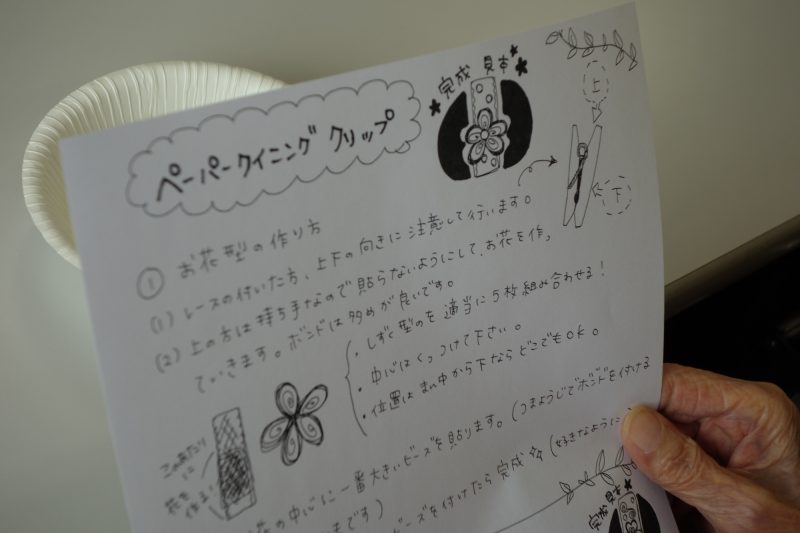 完成見本
ペーパークイニング クリップ
上
下
① お花型の作り方
(1) レースの付いた方、上下の向きに注意して行います。
(2) 上の方は持ち手なので貼らないようにして、お花を作っ
ていきます。ボンドは多めが良いです。
・しずく型のを適当に5枚組み合わせる!
・中心はくっつけて下さい。
・位置はまん中から下ならどこでもOK。
このあたりに
花を作る!
花の中心に一番大きいビーズを貼ります。(つまようじでボンドを付ける
ビーズを付けたら完成☆(好きなように
までです)
完成見本